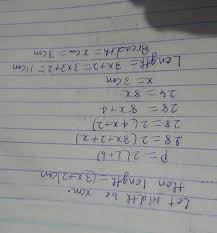 Let width be xcm.
then length = (3x+2)cm
P = 2(l+b)
28 = 2(3x+2+x)
28 = 2(4x+2)
28 = 8x+4
24 = 8x
x = 3cm
Length = 3x+2 = 3×3+2 = 11cm
Breadth = xcm = 3cm